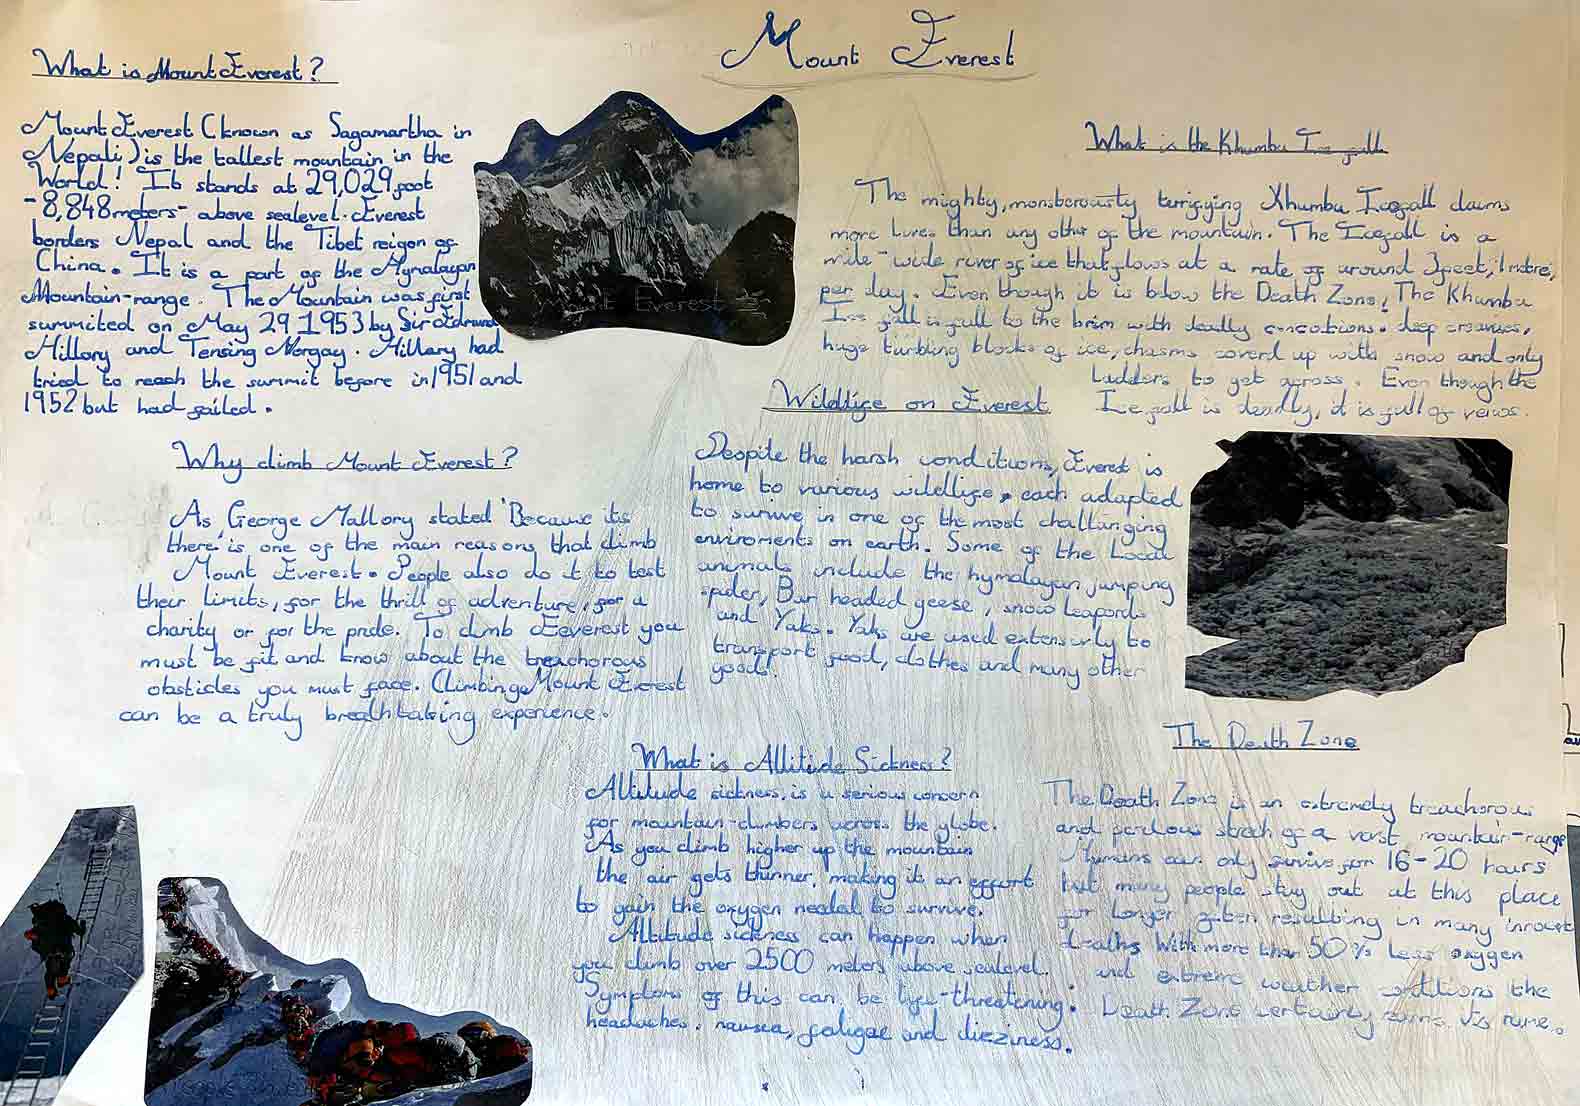 Mount Everest
What is Mount Everest?
Mount Everest (known as Sagamartha in
Nepali) is the tallest mountain in the
World! It stands at 29,029 foot
-8,848 meters- above sealevel. Everest
borders Nepal and the Tibet reigon of
China. It is a part of the Hymalayan
Mountain-range. The Mountain was first
summited on May 29 1953 by Sir Edmund
Hillory and Tensing Norgay. Hillary had
tried to reach the summit before in 1951 and
1952 but had failed.
Why climb Mount Everest?
As George Mallory stated 'Because its
there' is one of the main reasons that climb
Mount Everest. People also do it to test
their limits, for the thrill of adventure, for a
charity or for the pride. To climb Everest you
must be fit and know about the treachorous
obsticles you must face. Climbing Mount Everest
can be a truly breathtaking experience.
What is the Khumbu Ice fall
The mighty, monsterously terrifying Khumbu Icefall claims
more lives than any other of the mountain. The Icefall is a
mile-wide river of ice that flows at a rate of around 3 feet, 1 metre,
per day. Even though it is blow the Death Zone, The Khumbu
Ice fall is full to the brim with deadly concotions. deep crevises,
huge tumbling blocks of ice, chasms coverd up with snow and only
ladders to get across. Even though the
Ice fall is deadly, it is full of veiws.
Wildlife on Everest
Despite the harsh conditions, Everest is
home to various wildlife, each adapted
to survive in one of the most challanging
enviroments on earth. Some of the Local
animals include the hymalayan jumping
spider, Bar headed geese, snow leapords
and Yaks. Yaks are used extensivly to
transport food, clothes and many other
goods!
What is Altitude Sickness?
Altitude sickness, is a serious concern
for mountain-climbers across the globe.
As you climb higher up the mountain
the air gets thinner, making it an effort
to gain the oxygen needed to survive.
Altitude sickness can happen when
you climb over 2500 meters above sealevel.
Symptoms of this can be life-threatening:
headaches, nausea, fatigae and dizziness.
The Death Zone
The Death Zone is an extremely treachorous
and perilous strech of a vast mountain-range
Humans can only survive for 16-20 hours
but many people stay out at this place
for longer often resulting in many inrocent
deaths. With more than 50% Less oxygen
and extreme weather conditions the
Death Zone certainly earns its name.